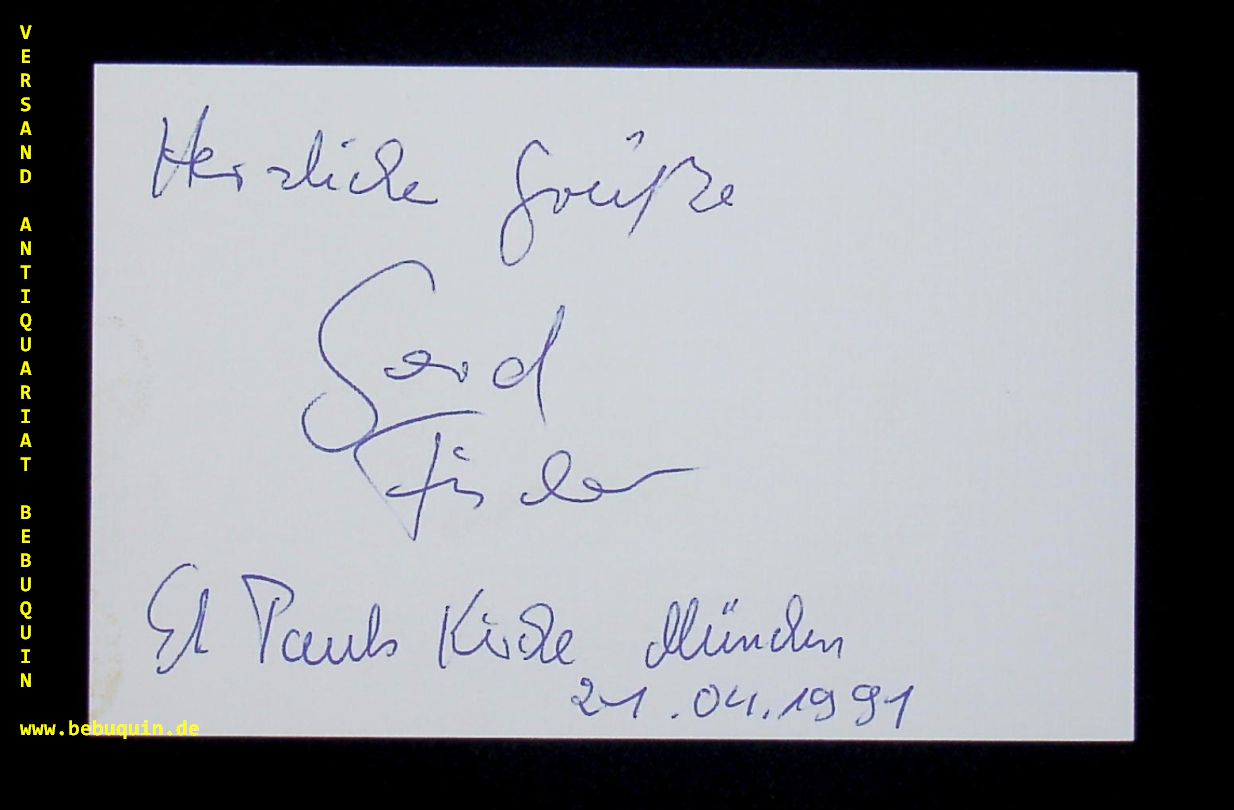 VERSAND ANTIQUARIAT BEBUQUIN
Herzliche Grüße
Gerd
Fischer
St Pauls Kirche München
21.04.1991
www.bebuquin.de